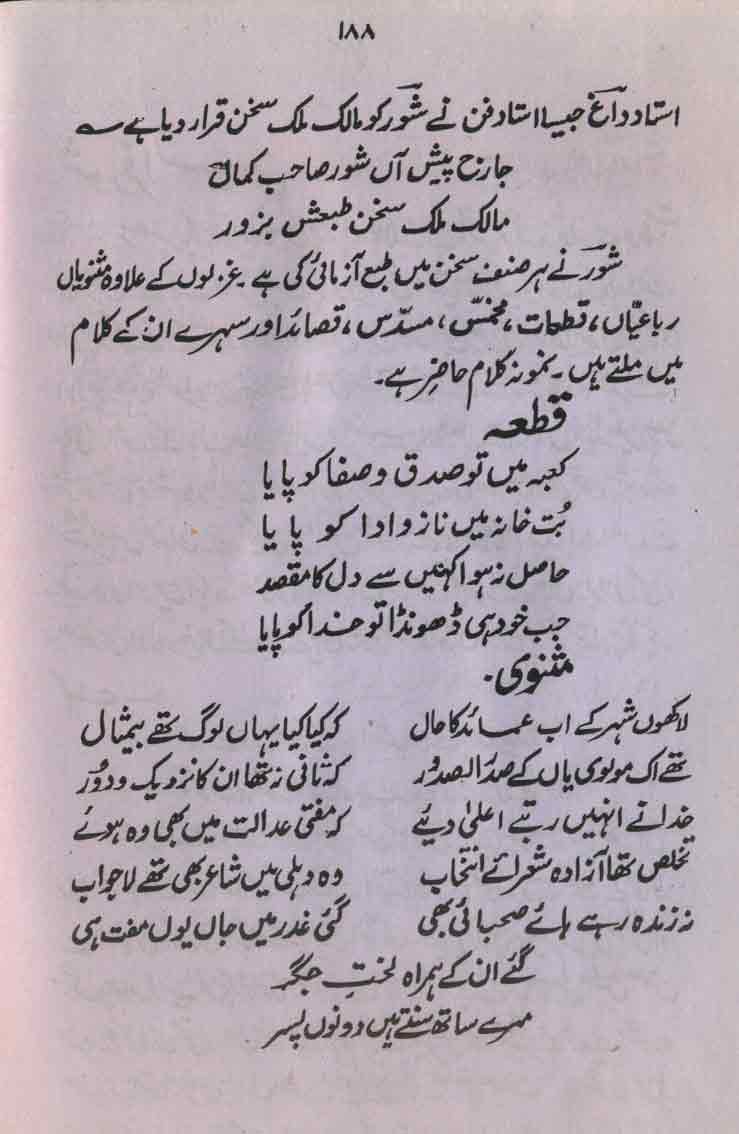 ۱۸۸
استاد داغؔ جیسا استاد فن نے شورؔ کو مالک ملک سخن قرار دیا ہے ؎
جارج پیش آں شور صاحب کمال
مالک ملک سخن طبعش بزور
شورؔ نے ہر صنف سخن میں طبع آزمائی کی ہے ۔ غزلوں کے علاوہ مثنویاں
رباعیّاں، قطعات، مخمسّ، مسدّس، قصائد اور سہرے ان کے کلام
میں ملتے ہیں ۔ نمونہ کلام حاضر ہے ۔
قطعہ
کعبہ میں تو صدق و صفا کو پایا
بُت خانہ میں ناز و ادا کو پایا
حاصل نہ ہوا کہیں سے دل کا مقصد
جب خود ہی ڈھونڈا تو خدا کو پایا
مثنوی ۔
لاکھوں شہر کے اب عمائد کا حال کہ کیا کیا یہاں لوگ تھے بیمثال
تھے اک مولوی یاں کے صدر الصدور کہ ثانی نہ تھا ان کا نزدیک و دور
خدا نے انہیں رتبے اعلیٰ دیئے کہ مفتی عدالت میں بھی وہ ہوئے
تخلص تھا آزادہ شعرائے انتخاب وہ دہلی میں شاعر بھی تھے لاجواب
نہ زندہ رہے ہائے صحبائی بھی گئی غدر میں جاں یوں مفت ہی
گئے ان کے ہمراہ لختِ جگر
مرے ساتھ سنتے ہیں دونوں پسر